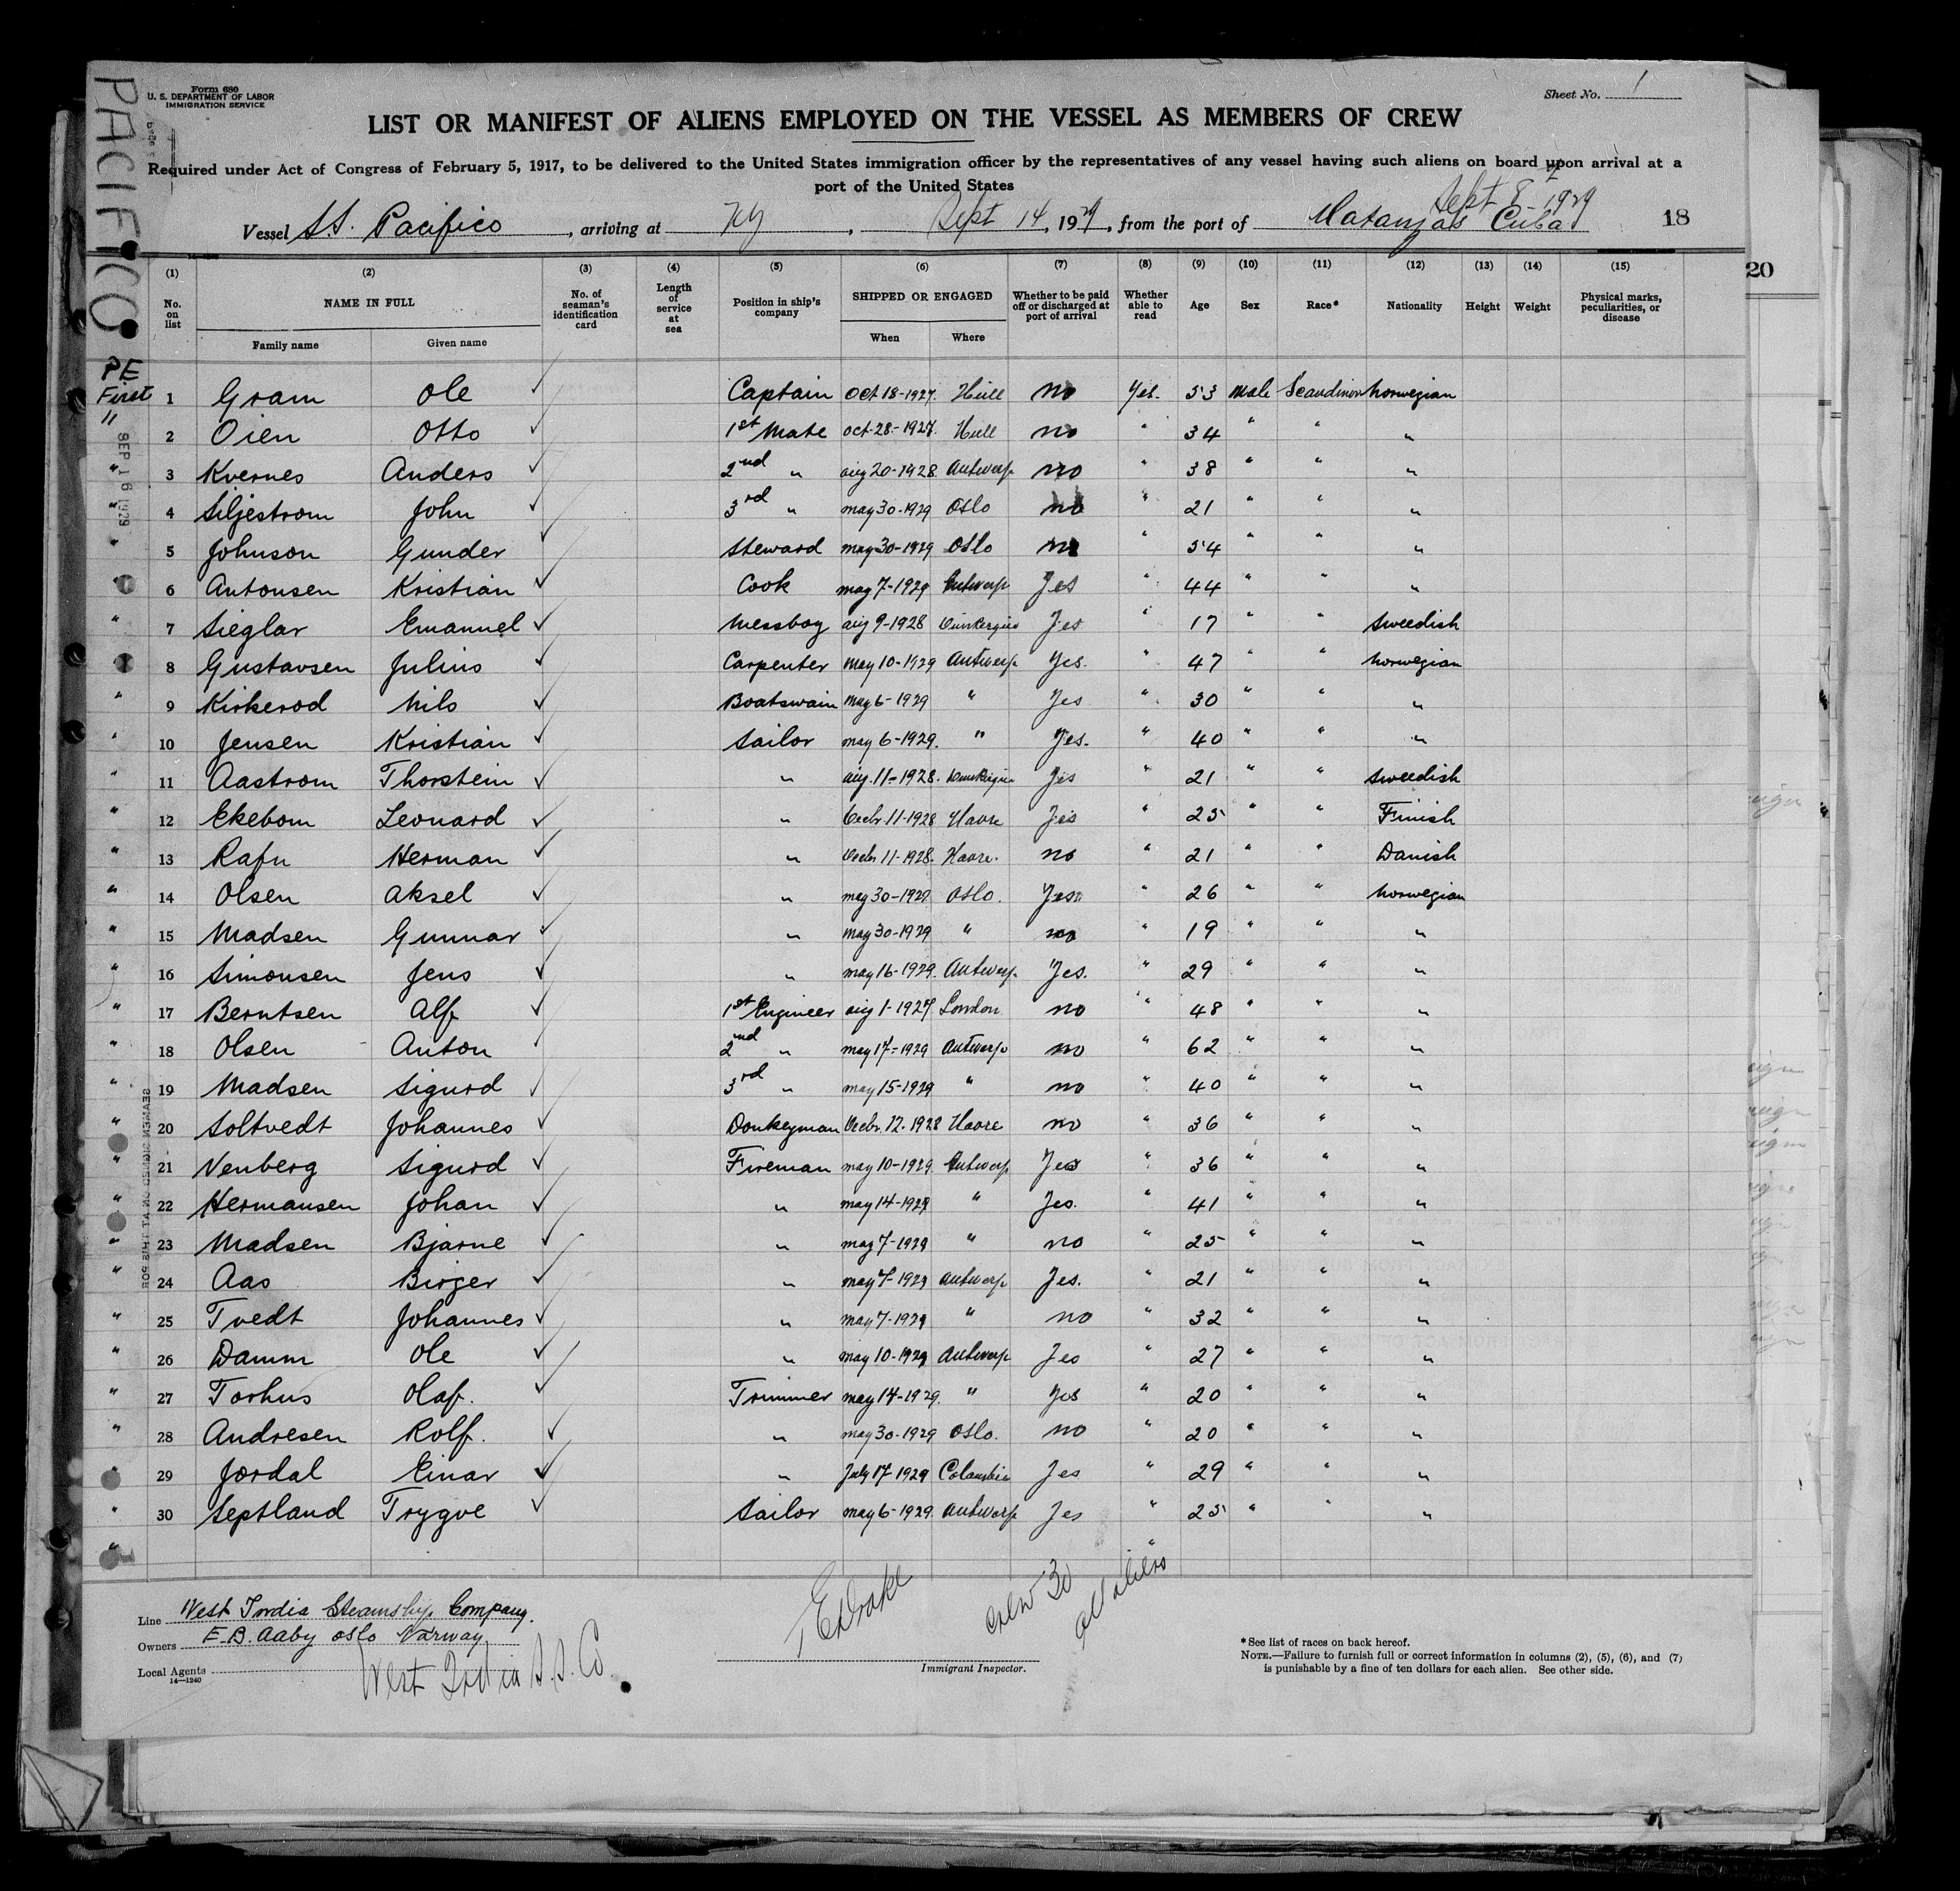 PACIFICO
Form 680
U. S. DEPARTMENT OF LABOR
IMMIGRATION SERVICE
Sheet No. 1
LIST OR MANIFEST OF ALIENS EMPLOYED ON THE VESSEL AS MEMBERS OF CREW
Required under Act of Congress of February 5, 1917, to be delivered to the United States immigration officer by the representatives of any vessel having such aliens on board upon arrival at a
port of the United States
Sept 8 - 1929
Vessel S.S. Pacifico, arriving at NY, Sept 14, 1929, from the port of Matanzas Cuba 18
20
(1) (2) (3) (4) (5) (6) (7) (8) (9) (10) (11) (12) (13) (14) (15)
No. on list NAME IN FULL No. of seaman's identification card Length of service at sea Position in ship's company SHIPPED OR ENGAGED Whether to be paid off or discharged at port of arrival Whether able to read Age Sex Race* Nationality Height Weight Physical marks, peculiarities, or disease
Family name Given name When Where
PE
First 1 Gram Ole Captain Oct 18-1927. Hull no Yes. 53 Male Scandinav Norwegian
" 2 Oien Otto 1st Mate oct. 28.-1927. Hull no " 34 " " "
" 3 Kvernes Anders 2nd " aug 20-1928 Antwerp no " 38 " " "
" 4 Siljestrom John 3rd " may 30-1929 Oslo no " 21 " " "
" 5 Johnson Gunder Steward may 30-1929 Oslo no " 54 " " "
" 6 Antonsen Kristian Cook may 7-1929 Antwerp Yes " 44 " " "
" 7 Sieglar Emanuel Messboy aug 9-1928 Dunkerque Yes " 17 " " Sweedish
" 8 Gustavsen Julius Carpenter may 10-1929 Antwerp Yes. " 47 " " Norwegian
" 9 Kirkerod Nils Boatswain may 6-1929 " Yes " 30 " " "
" 10 Jensen Kristian Sailor may 6-1929. " Yes. " 40 " " "
" 11 Aastrom Thorstein " aug. 11-1928. Dunkerque Yes " 21 " " Sweedish
" 12 Ekebom Leonard " Decbr. 11-1928 Havre Yes " 25 " " Finish
" 13 Rafn Herman " Decbr 11-1928. Havre. no " 21 " " Danish
" 14 Olsen Aksel " may 30-1929 Oslo. Yes " 26 " " Norwegian
" 15 Madsen Gunnar " may 30-1929 " no " 19 " " "
" 16 Simonsen Jens " may 16-1929. Antwerp. Yes. " 29 " " "
" 17 Berntsen Alf 1st Engineer aug 1-1927. London no " 48 " " "
" 18 Olsen Anton 2nd " may 17-1929 Antwerp no " 62 " " "
" 19 Madsen Sigurd 3rd " may 15-1929 " no " 40 " " "
" 20 Soltvedt Johannes Donkeyman Decbr. 12. 1928 Havre no " 36 " " "
" 21 Venberg Sigurd Fireman may 10-1929. Antwerp Yes " 36 " " "
" 22 Hermansen Johan " may 14-1929 " Yes. " 41 " " "
" 23 Madsen Bjarne " may 7-1929 " no " 25 " " "
" 24 Aas Birger " may 7-1929 Antwerp Yes. " 21 " " "
" 25 Tvedt Johannes " may 7-1929 " no " 32 " " "
" 26 Damm Ole " may 10-1929 Antwerp Yes " 27 " " "
" 27 Torhus Olaf. Trimmer may 14-1929. " Yes " 20 " " "
" 28 Andresen Rolf. " may 30-1929 Oslo. no " 20 " " "
" 29 Jordal Einar " July 17-1929 Colombia Yes " 29 " " "
" 30 Septland Trygve Sailor may 6-1929. Antwerp Yes " 25 " " "
SEP 16 1929
Line West India Steamship Company.
Owners E. B. Aaby Oslo Norway
Local Agents West India S.S. Co
14—1240
Crew 30
all aliens
Immigrant Inspector.
*See list of races on back hereof.
NOTE.—Failure to furnish full or correct information in columns (2), (5), (6), and (7)
is punishable by a fine of ten dollars for each alien. See other side.